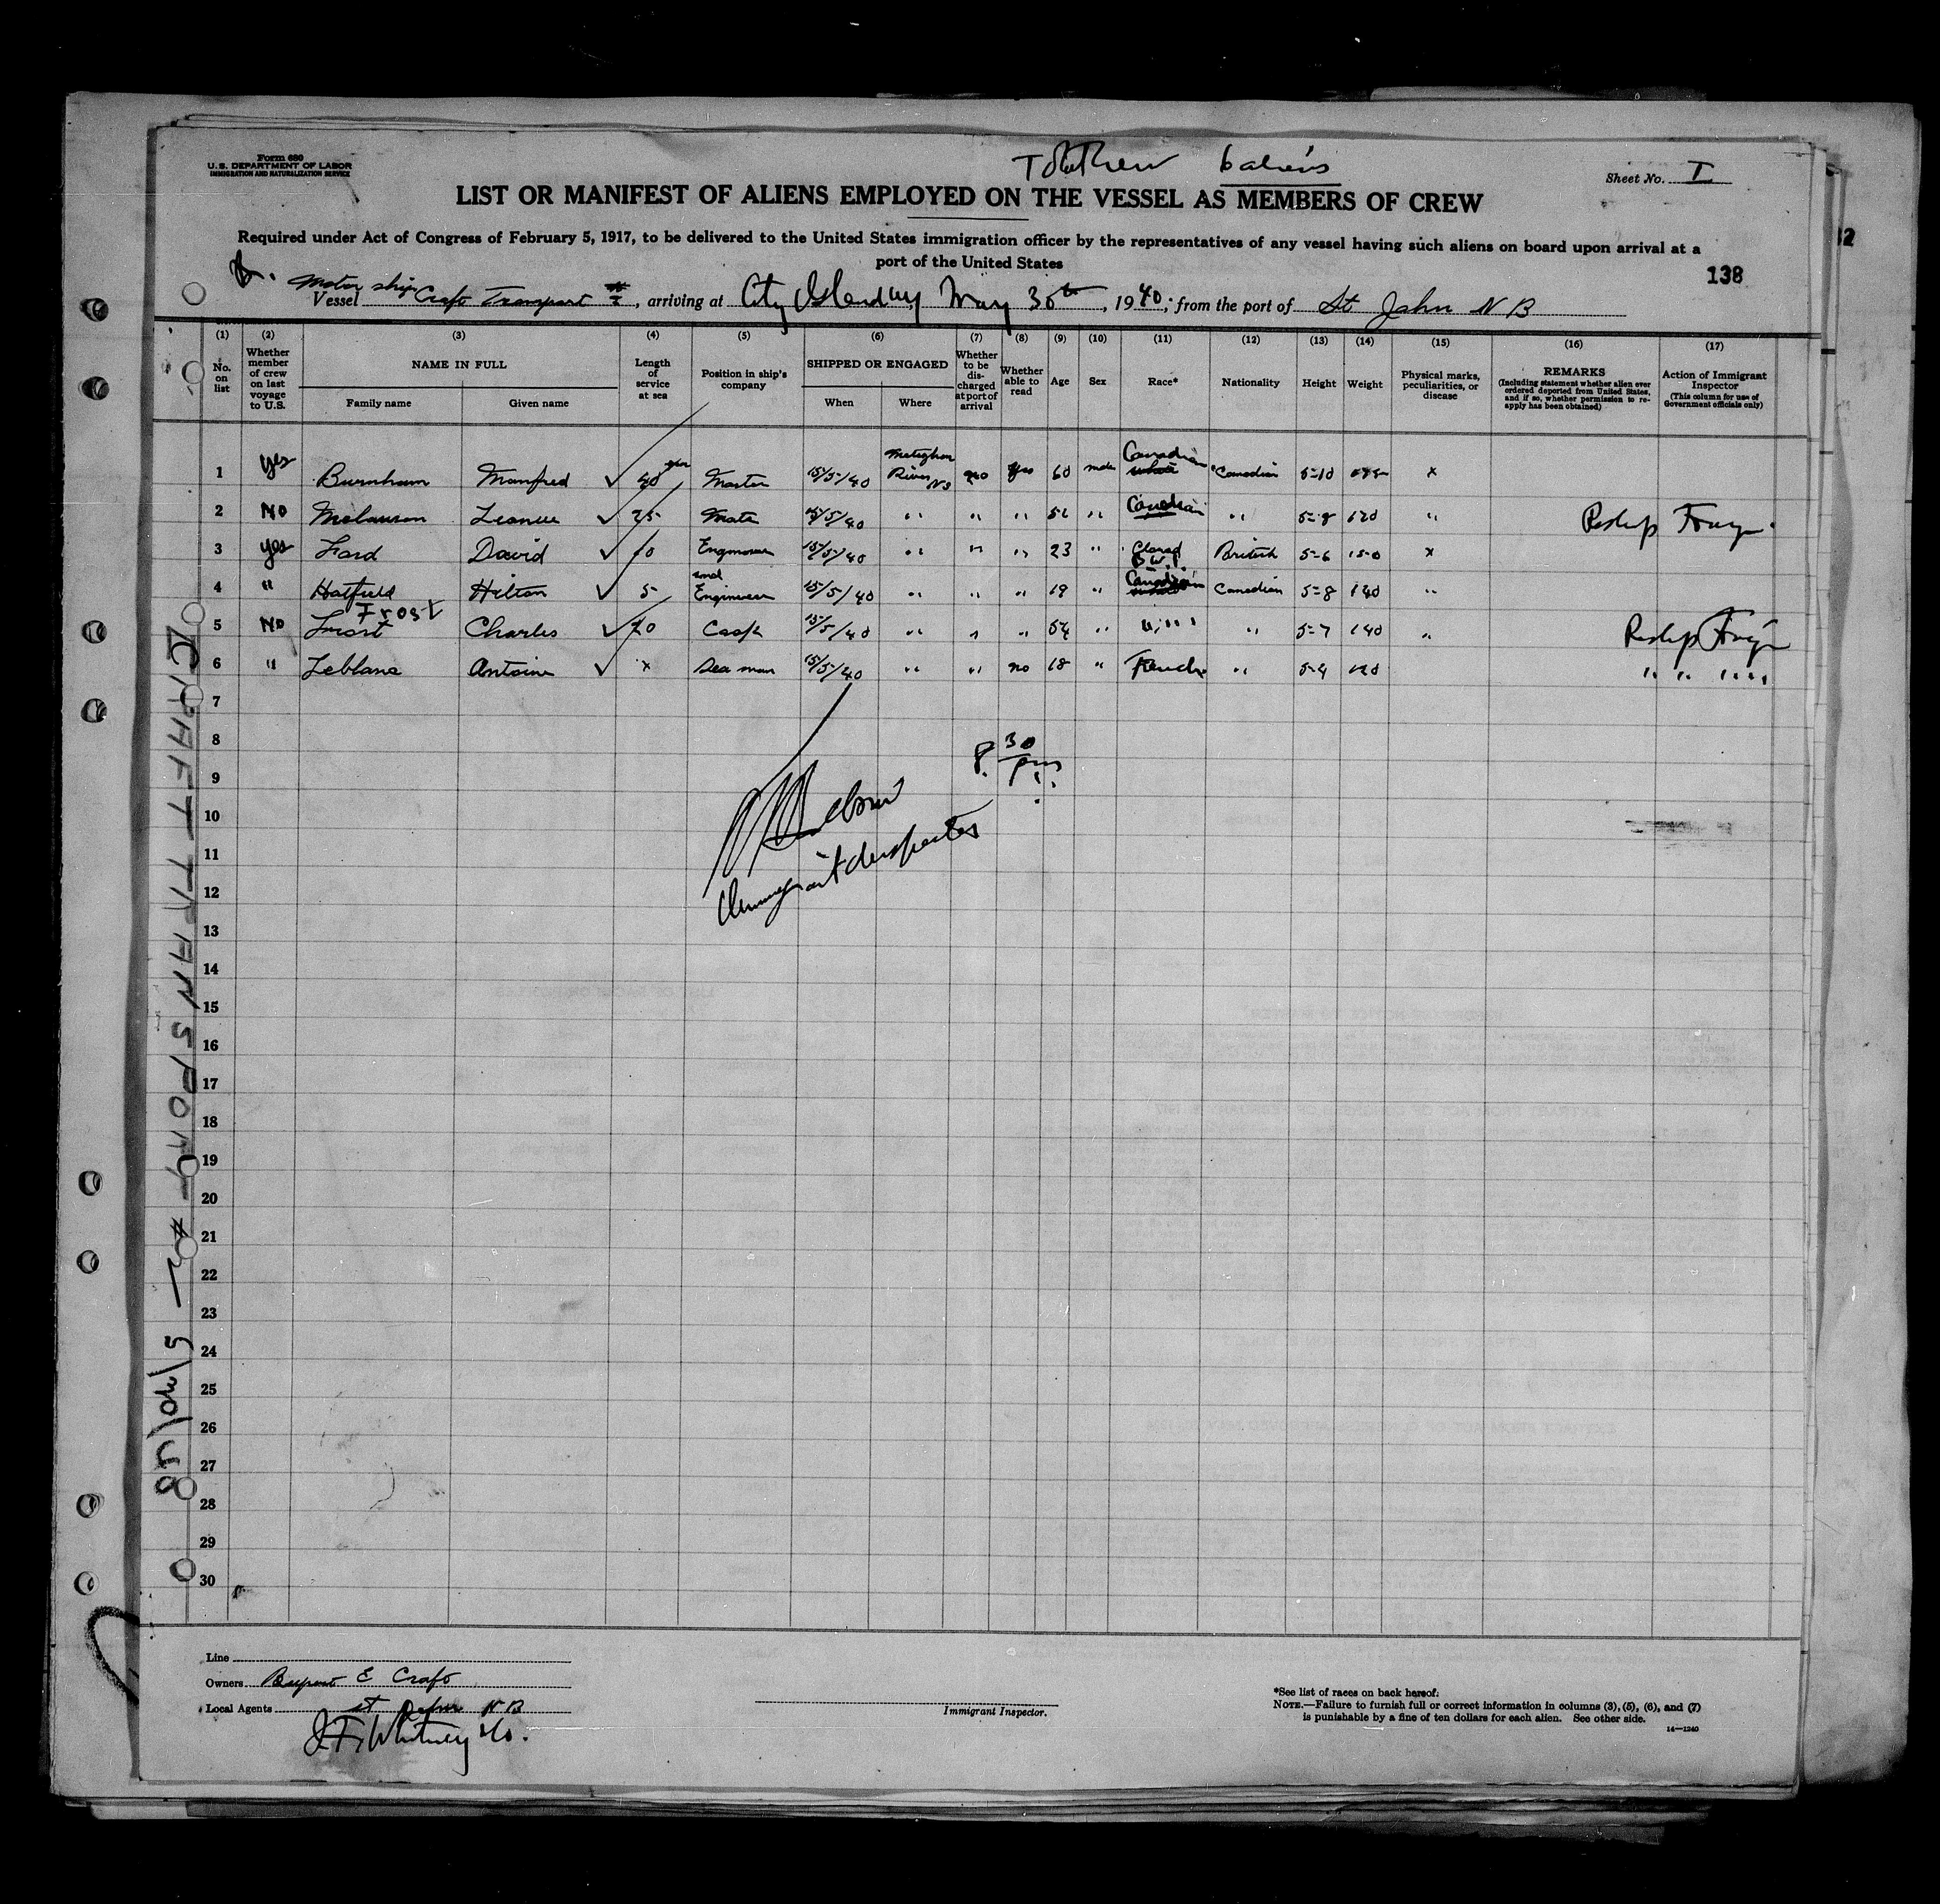 Form 680
U.S. DEPARTMENT OF LABOR
IMMIGRATION AND NATURALIZATION SERVICE
6 aliens
Sheet No. I
LIST OR MANIFEST OF ALIENS EMPLOYED ON THE VESSEL AS MEMBERS OF CREW
Required under Act of Congress of February 5, 1917, to be delivered to the United States immigration officer by the representatives of any vessel having such aliens on board upon arrival at a
port of the United States
138
Motor ship
Vessel Craft Transport # I, arriving at City Island NY May 30th, 1940; from the port of St John N B
(1) (2) (3) (4) (5) (6) (7) (8) (9) (10) (11) (12) (13) (14) (15) (16) (17)
No. on list
Whether member of crew on last voyage to U.S.
NAME IN FULL
Family name
Given name
Length of service at sea
Position in ship's company
SHIPPED OR ENGAGED
When
Where
Whether to be discharged at port of arrival
Whether able to read
Age
Sex
Race*
Nationality
Height
Weight
Physical marks, peculiarities, or disease
REMARKS
(Including statement whether alien ever ordered deported from United States, and if so, whether permission to reapply has been obtained)
Action of Immigrant Inspector
(This column for use of Government officials only)
1 yes Burnham Manfred ✓ 40 yrs Master 15/5/40 Meteghan River NS no yes 60 male Canadian Canadian 5-10 x
2 No ✓ 25 Mate 15/5/40 " " " " " Canadian " 5-8 "
3 yes Ford David ✓ 10 15/5/40 " " " 23 " B W.I. British 5-6 150 x
4 " Hatfield Hilton ✓ 5 2nd 15/5/40 " " " 19 " Canadian Canadian 5-8 140 "
5 No Frost Frost Charles ✓ 20 Cook 15/5/40 " " " 54 " " " " 5-7 140 "
6 " Leblanc Antoine ✓ x Sea man 15/5/40 " " no 18 " French " 5-4 120
" " " "
7
8
9
10
11
12
13
14
15
16
17
18
19
20
21
22
23
24
25
26
27
28
29
30
8.30 pm
Immigrant Inspector
CRAFT TRANSPORT #
Line
Owners E Craft
Local Agents St John N B
J.F. Whitney & Co.
Immigrant Inspector.
*See list of races on back hereof.
NOTE.—Failure to furnish full or correct information in columns (3), (5), (6), and (7)
is punishable by a fine of ten dollars for each alien. See other side.
14—1240